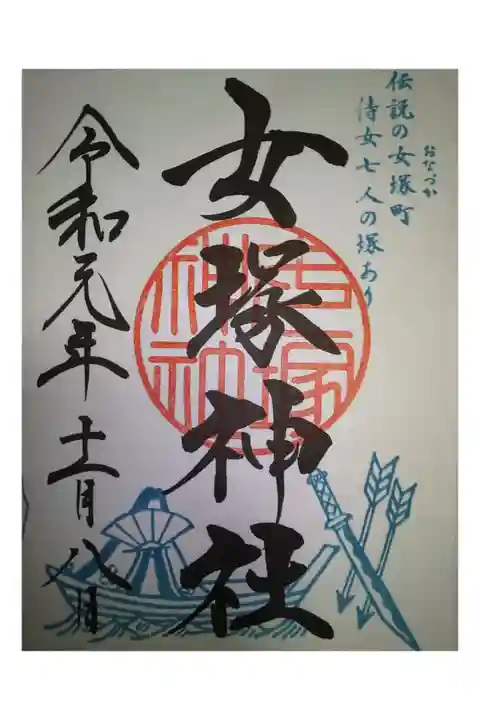 伝説の女塚町
おなづか
侍女七人の塚あり
女塚神社
女塚神社
令和元年十一月八日